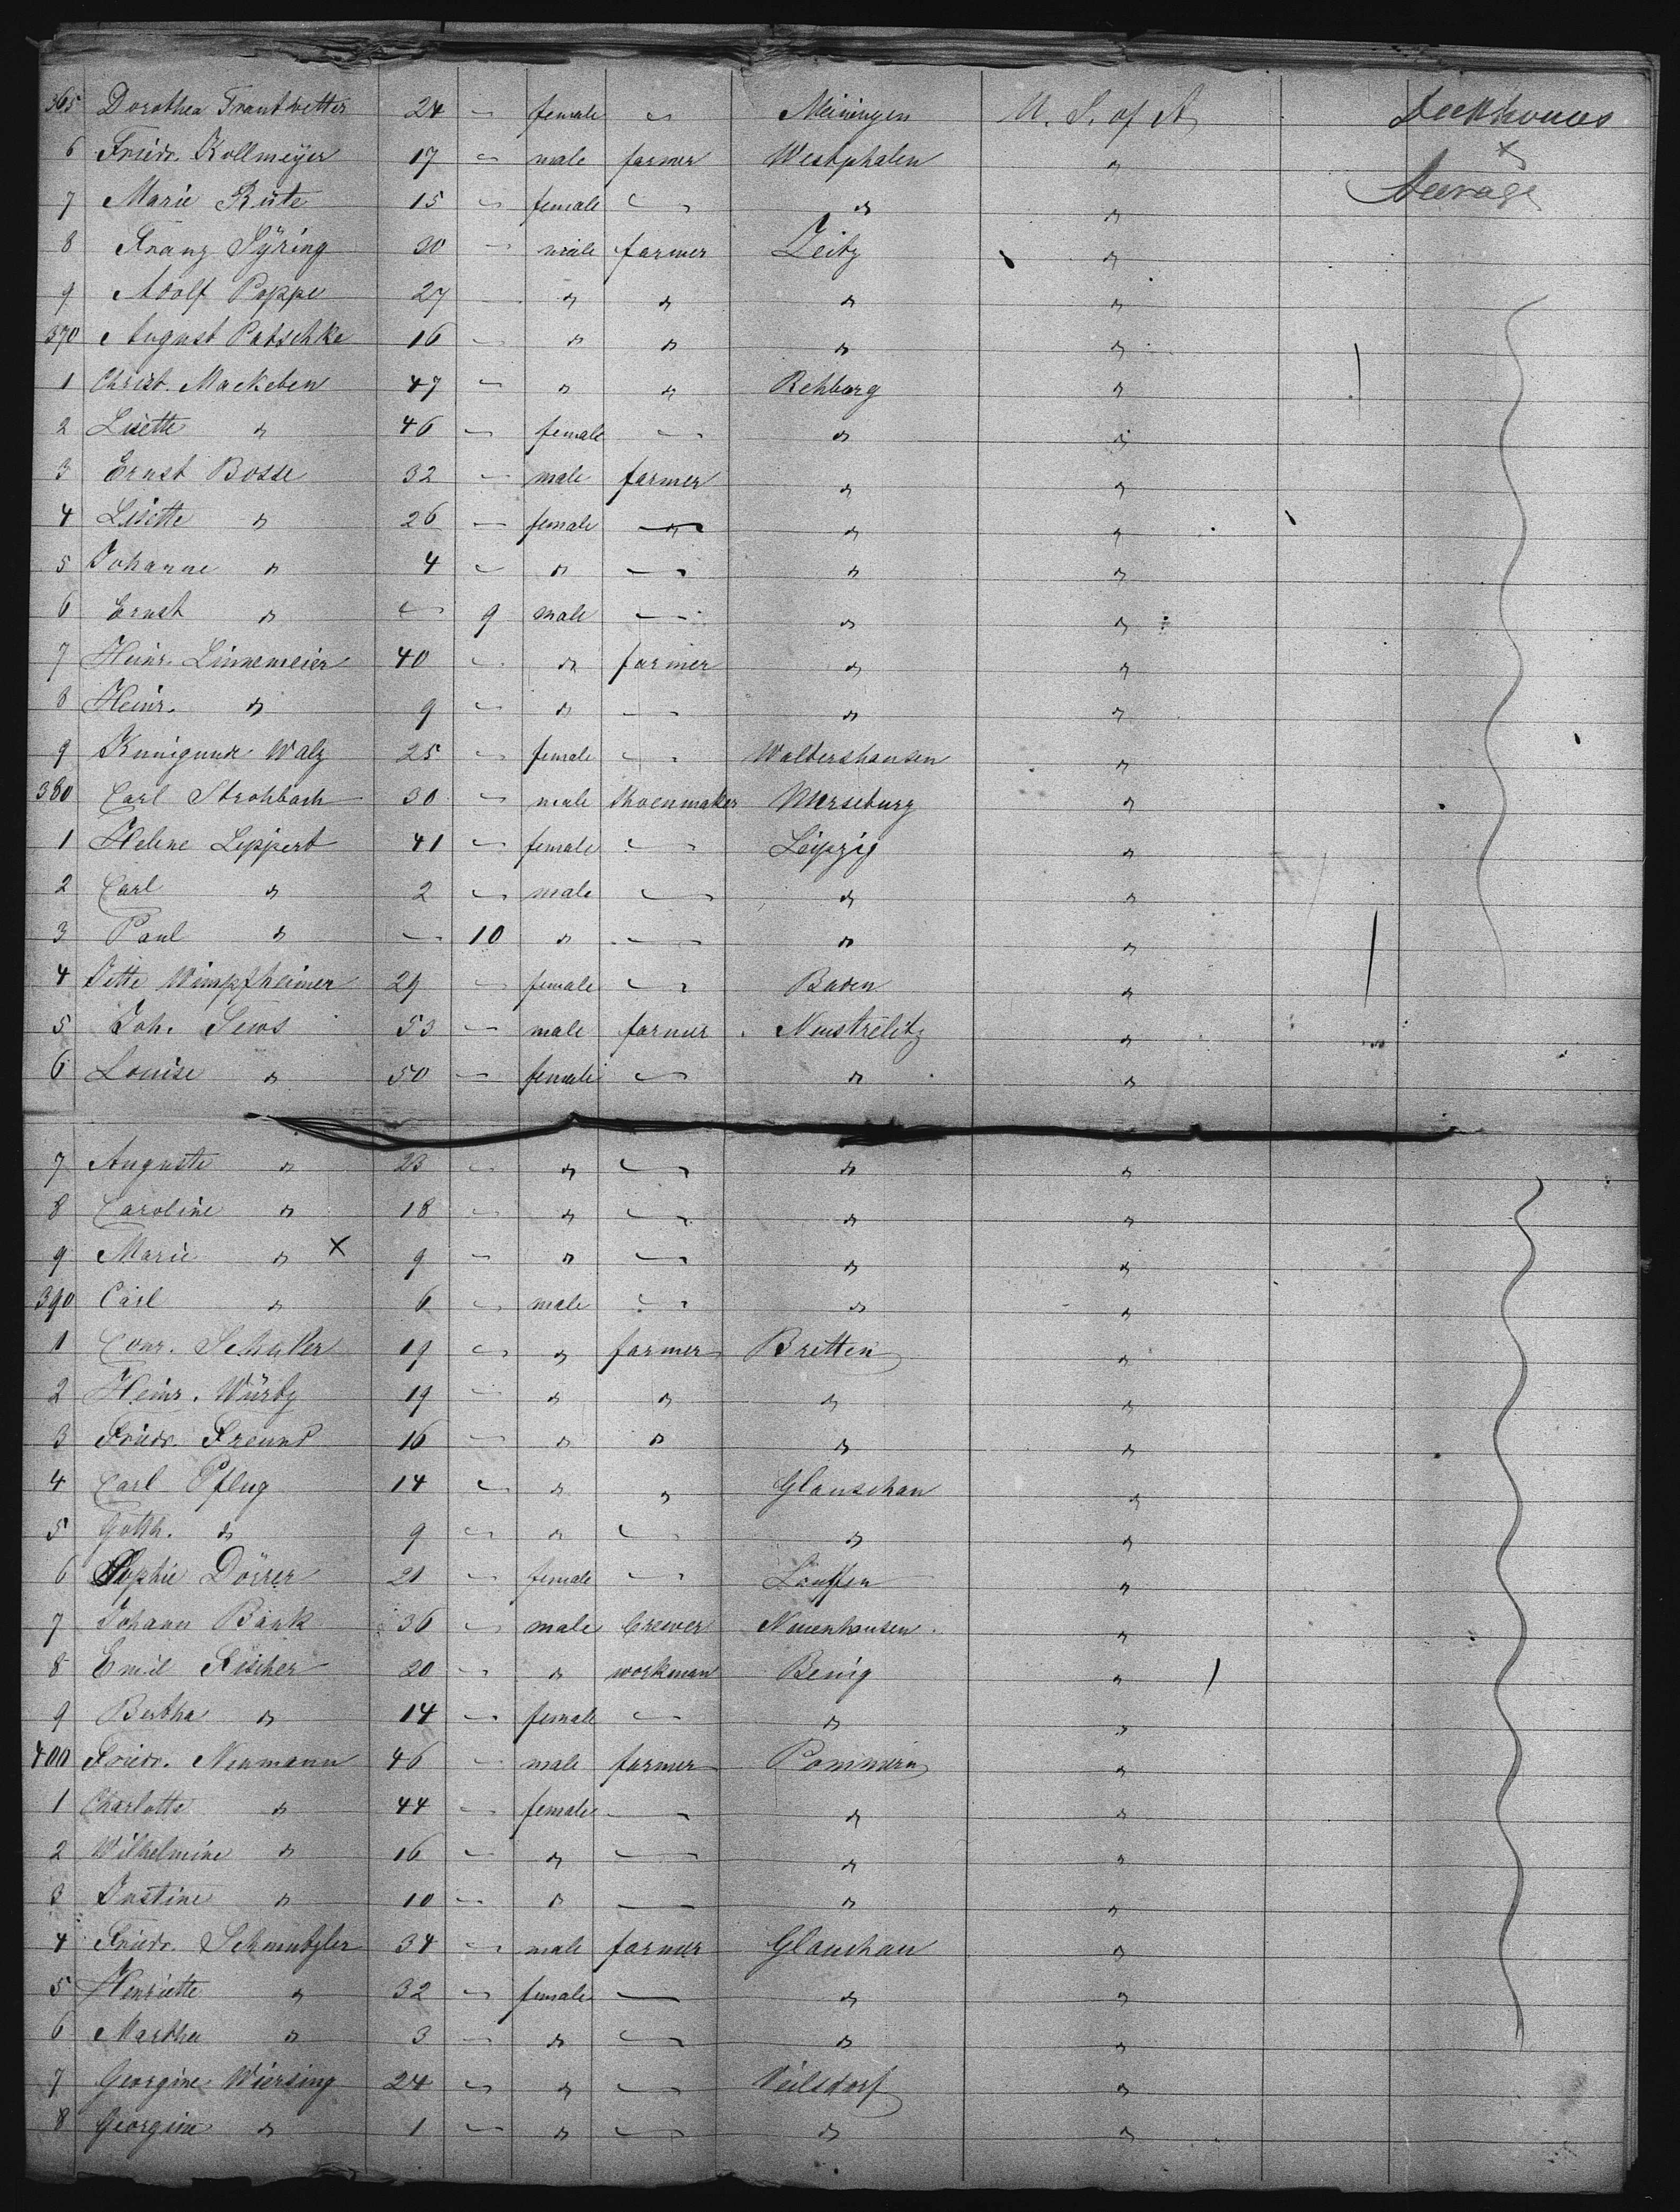 365 Dorothea Trautvetter 24 — female — Meiningen U. S. of A Deckhouses
6 Friedr. Kollmeÿer 17 — male farmer Westphalen " x
7 Marie Rüte 15 — female — " " Steerage
8 Franz Sÿring 30 — male farmer Zeitz "
9 Adolf Poppe 27 — " " " "
370 August Patschke 16 — " " " "
1 Christ. Mackeben 47 — " " Rehburg "
2 Lisette " 46 — female — " "
3 Ernst Bosse 32 — male farmer " "
4 Lisette " 26 — female — " "
5 Johanne " 4 — " — " "
6 Ernst " — 9 male — " "
7 Heinr. Linnemeier 40 — " farmer " "
8 Heinr. " 9 — " — " "
9 Kunigunde Walz 25 — female — Waltershausen "
380 Carl Strohbach 30 — male Shoenmaker Merseburg "
1 Helene Leppert 41 — female — Leipzig "
2 Carl " 2 — male — " "
3 Paul " — 10 " — " "
4 Jette Wimpfheimer 29 — female — Baden "
5 Joh. Sews 53 — male farmer Neustrelitz "
6 Louise " 50 — female — " "
7 Auguste " 23 — " — " "
8 Caroline " 18 — " — " "
9 Marie " x 9 — " — " "
390 Carl " 6 — male — " "
1 Conr. Schuler 19 — " farmer Bretten "
2 Heinr. Würtz 19 — " " " "
3 Friedr. Freund 16 — " " " "
4 Carl Pflug 14 — " " Glauschau "
5 Gotth. " 9 — " — " "
6 Sophie Dörrer 21 — female — Lauffen "
7 Johann Bänk 36 — male brewer Neuenhausen "
8 Emil Fischer 20 — " workman Benig "
9 Bertha " 14 — female — " "
400 Friedr. Neumann 46 — male farmer Pommern "
1 Charlotte " 44 — female — " "
2 Wilhelmine " 16 — " — " "
3 Justine " 10 — " — " "
4 Friedr. Schmutzler 34 — male farmer Glauchau "
5 Henriette " 32 — female — " "
6 Martha " 3 — " — " "
7 Georgine Wiersing 24 — " — Veilsdorf "
8 Georgine " 1 — " — " "